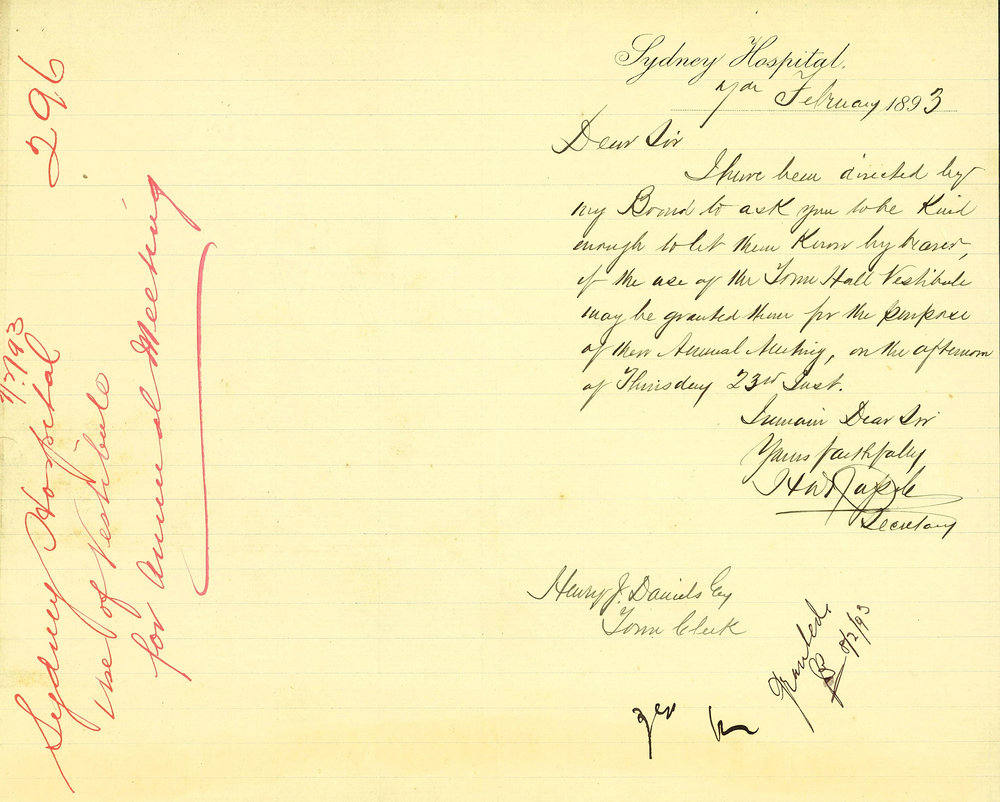 296
7/2/93
Sydney Hospital
Use of Vestibule
for Annual Meeting
Sydney Hospital.
7th February 1893
Dear Sir
I have been directed by
my Board to ask you to be kind
enough to let them know by bearer,
if the use of the Town Hall Vestibule
may be granted them for the purpose
of their Annual Meeting, on the afternoon
of Thursday 23rd Inst.
I remain Dear Sir
Yours faithfully
Secretary
Henry J. Daniels Esq
Town Clerk
Granted.
8/2/93